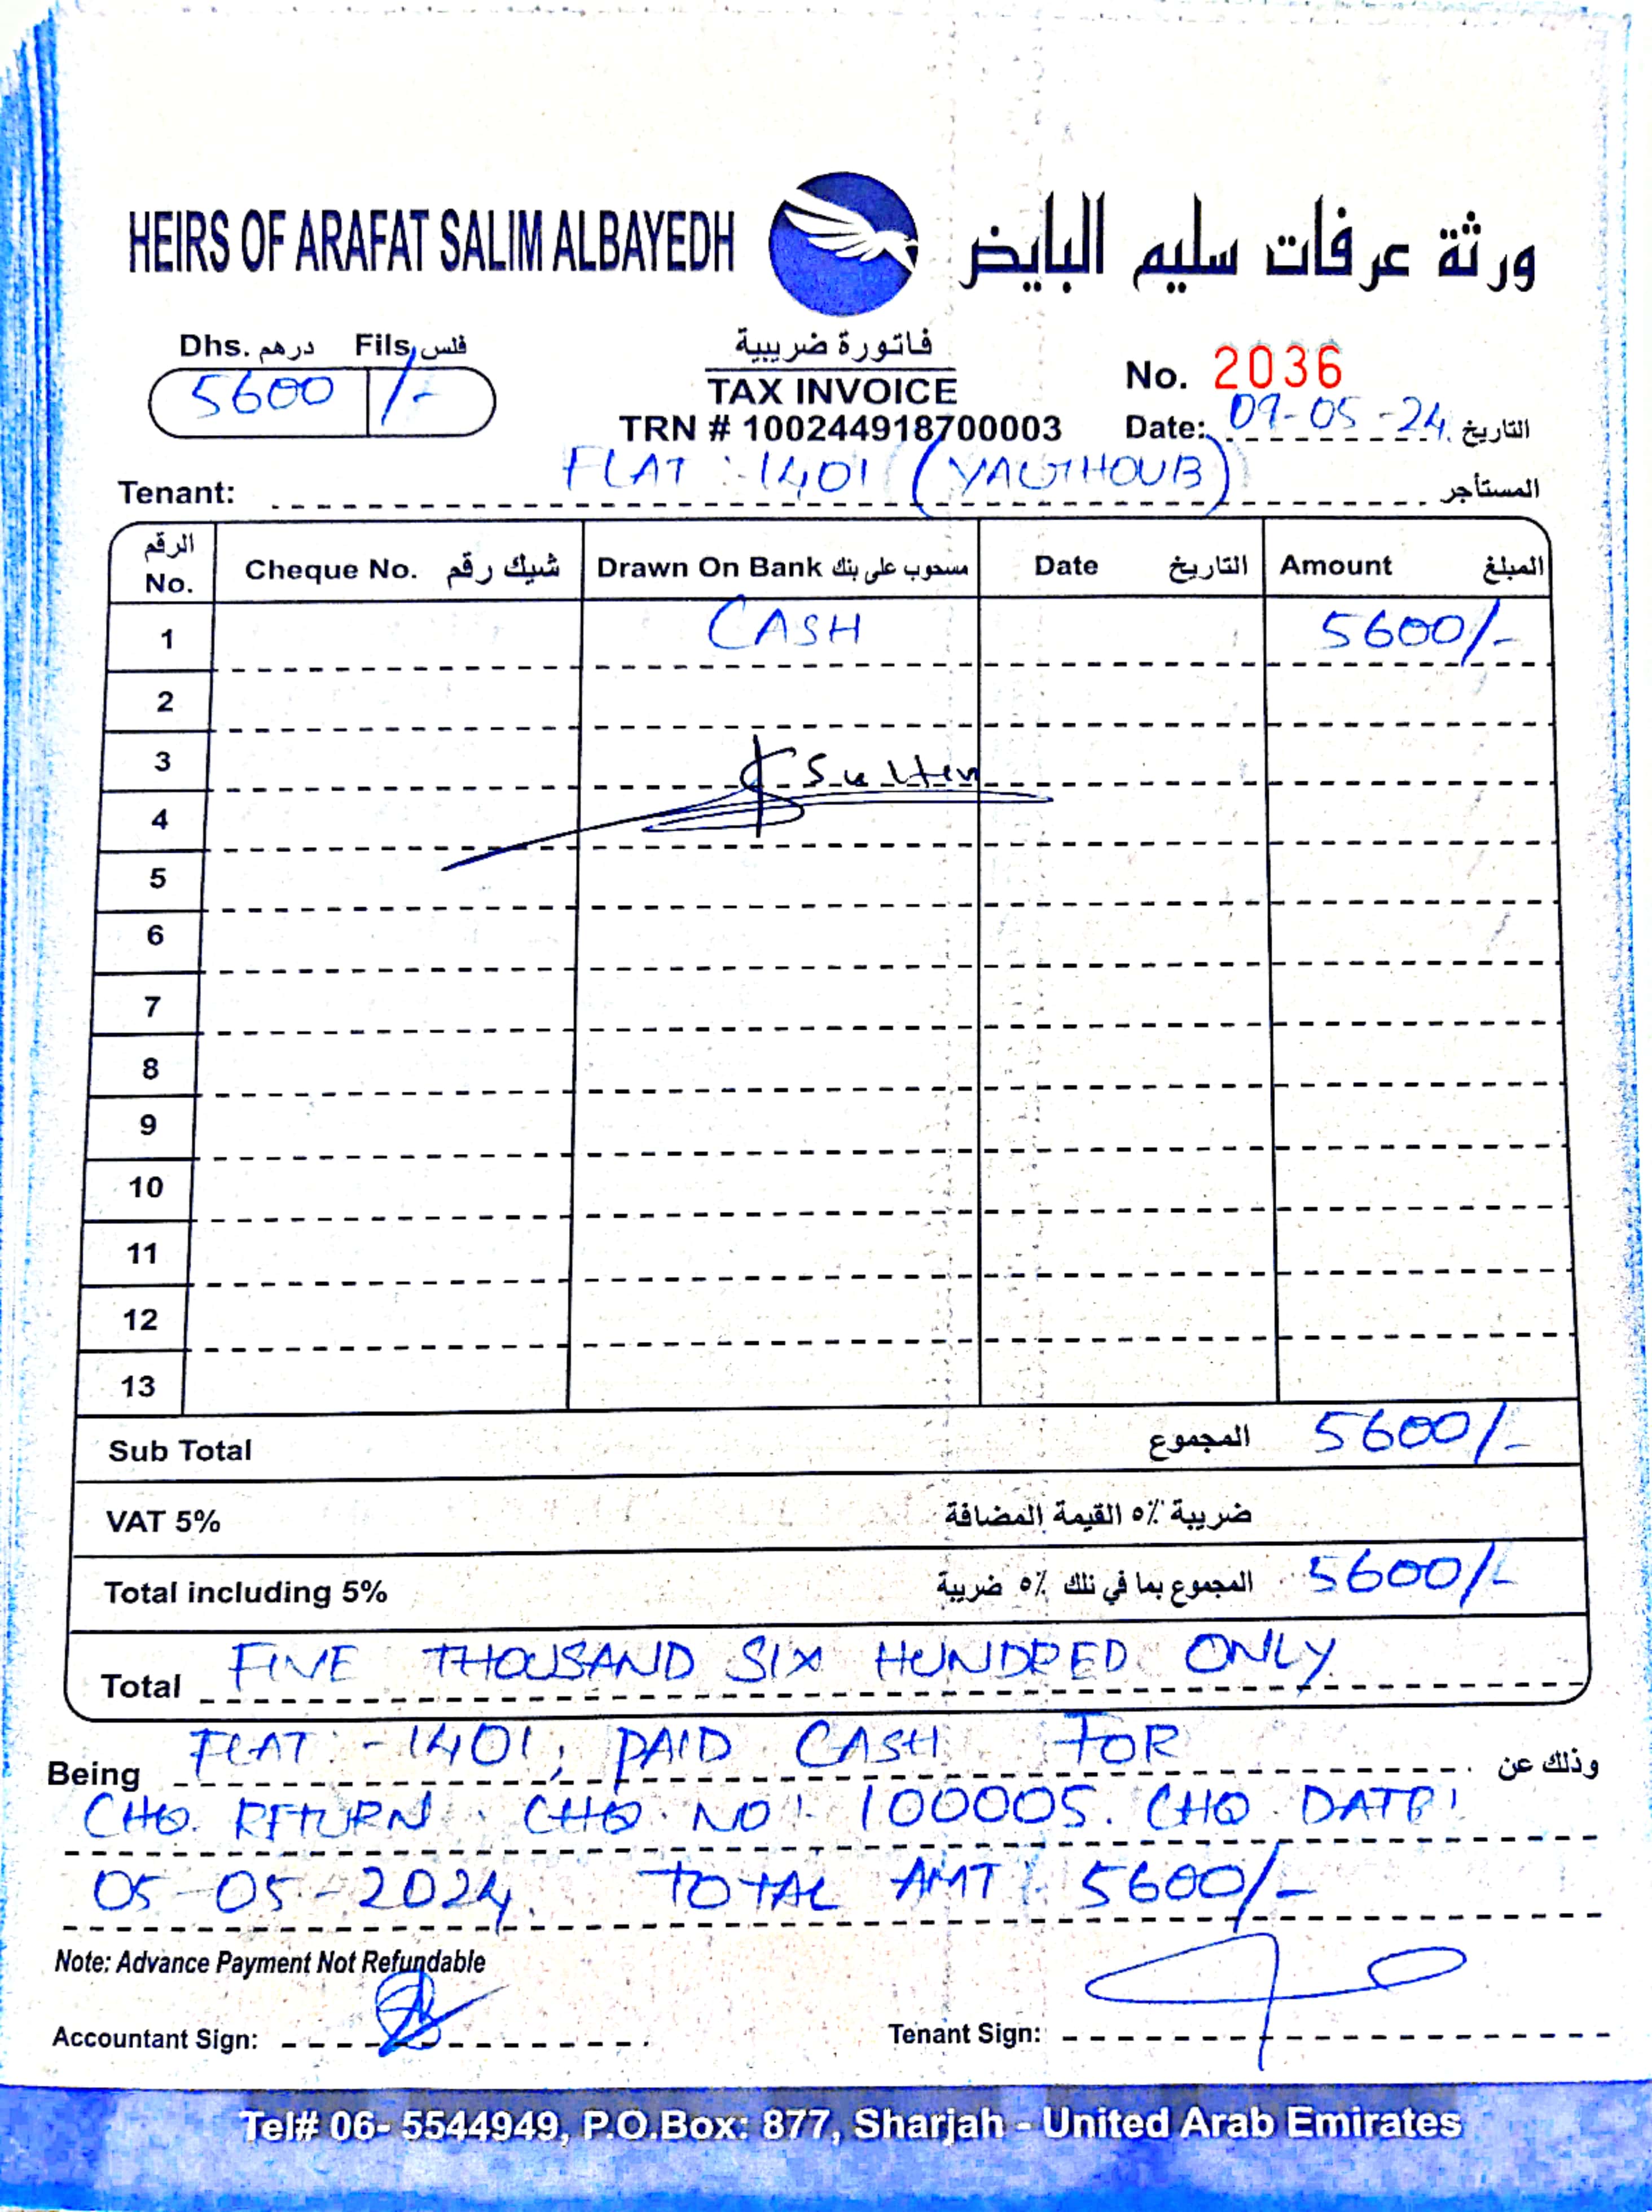 HEIRS OF ARAFAT SALIM ALBAYEDH ورثة عرفات سليم البايض
Dhs. درهم Fils. فلس
5600 /-
فاتورة ضريبية
TAX INVOICE
TRN # 100244918700003
No. 2036
Date: 09-05-24 التاريخ
Tenant: FLAT :-1401 (YAUTHOUB) المستأجر
الرقم No. Cheque No. شيك رقم Drawn On Bank مسحوب على بنك Date التاريخ Amount المبلغ
1 CASH 5600/-
2
3
4
5
6
7
8
9
10
11
12
13
Sub Total المجموع 5600/-
VAT 5% ضريبة ٥٪ القيمة المضافة
Total including 5% المجموع بما في ذلك ٥٪ ضريبة 5600/-
Total FIVE THOUSAND SIX HUNDRED ONLY
Being FLAT:-1401, PAID CASH FOR وذلك عن
CHQ. RETURN. CHQ. NO: 100005. CHQ. DATE:
05-05-2024. TOTAL AMT: 5600/-
Note: Advance Payment Not Refundable
Accountant Sign: Tenant Sign:
Tel# 06- 5544949, P.O.Box: 877, Sharjah - United Arab Emirates